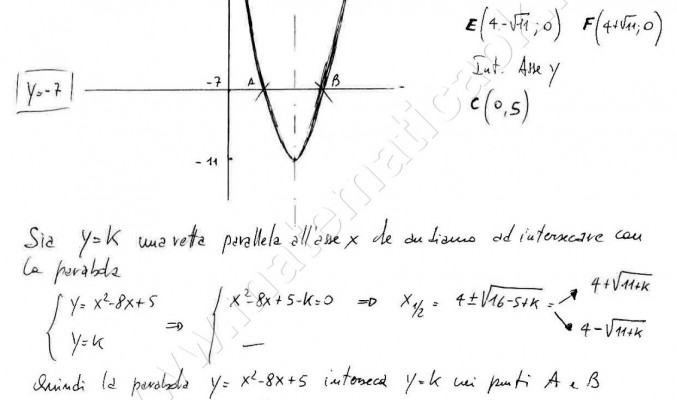 E(4-√11;0) F(4+√11;0)
Int. Asse y
C(0,5)
y=-7
-7 A B
-11
Sia y=k una retta parallela all'asse x che andiamo ad intersecare con
la parabola
{ y=x²-8x+5 ⇒ { x²-8x+5-k=0 ⇒ x1/2 = 4±√16-5+k = 4+√11+k
y=k — 4-√11+k
Quindi la parabola y=x²-8x+5 interseca y=k nei punti A e B
www.matematicaok.